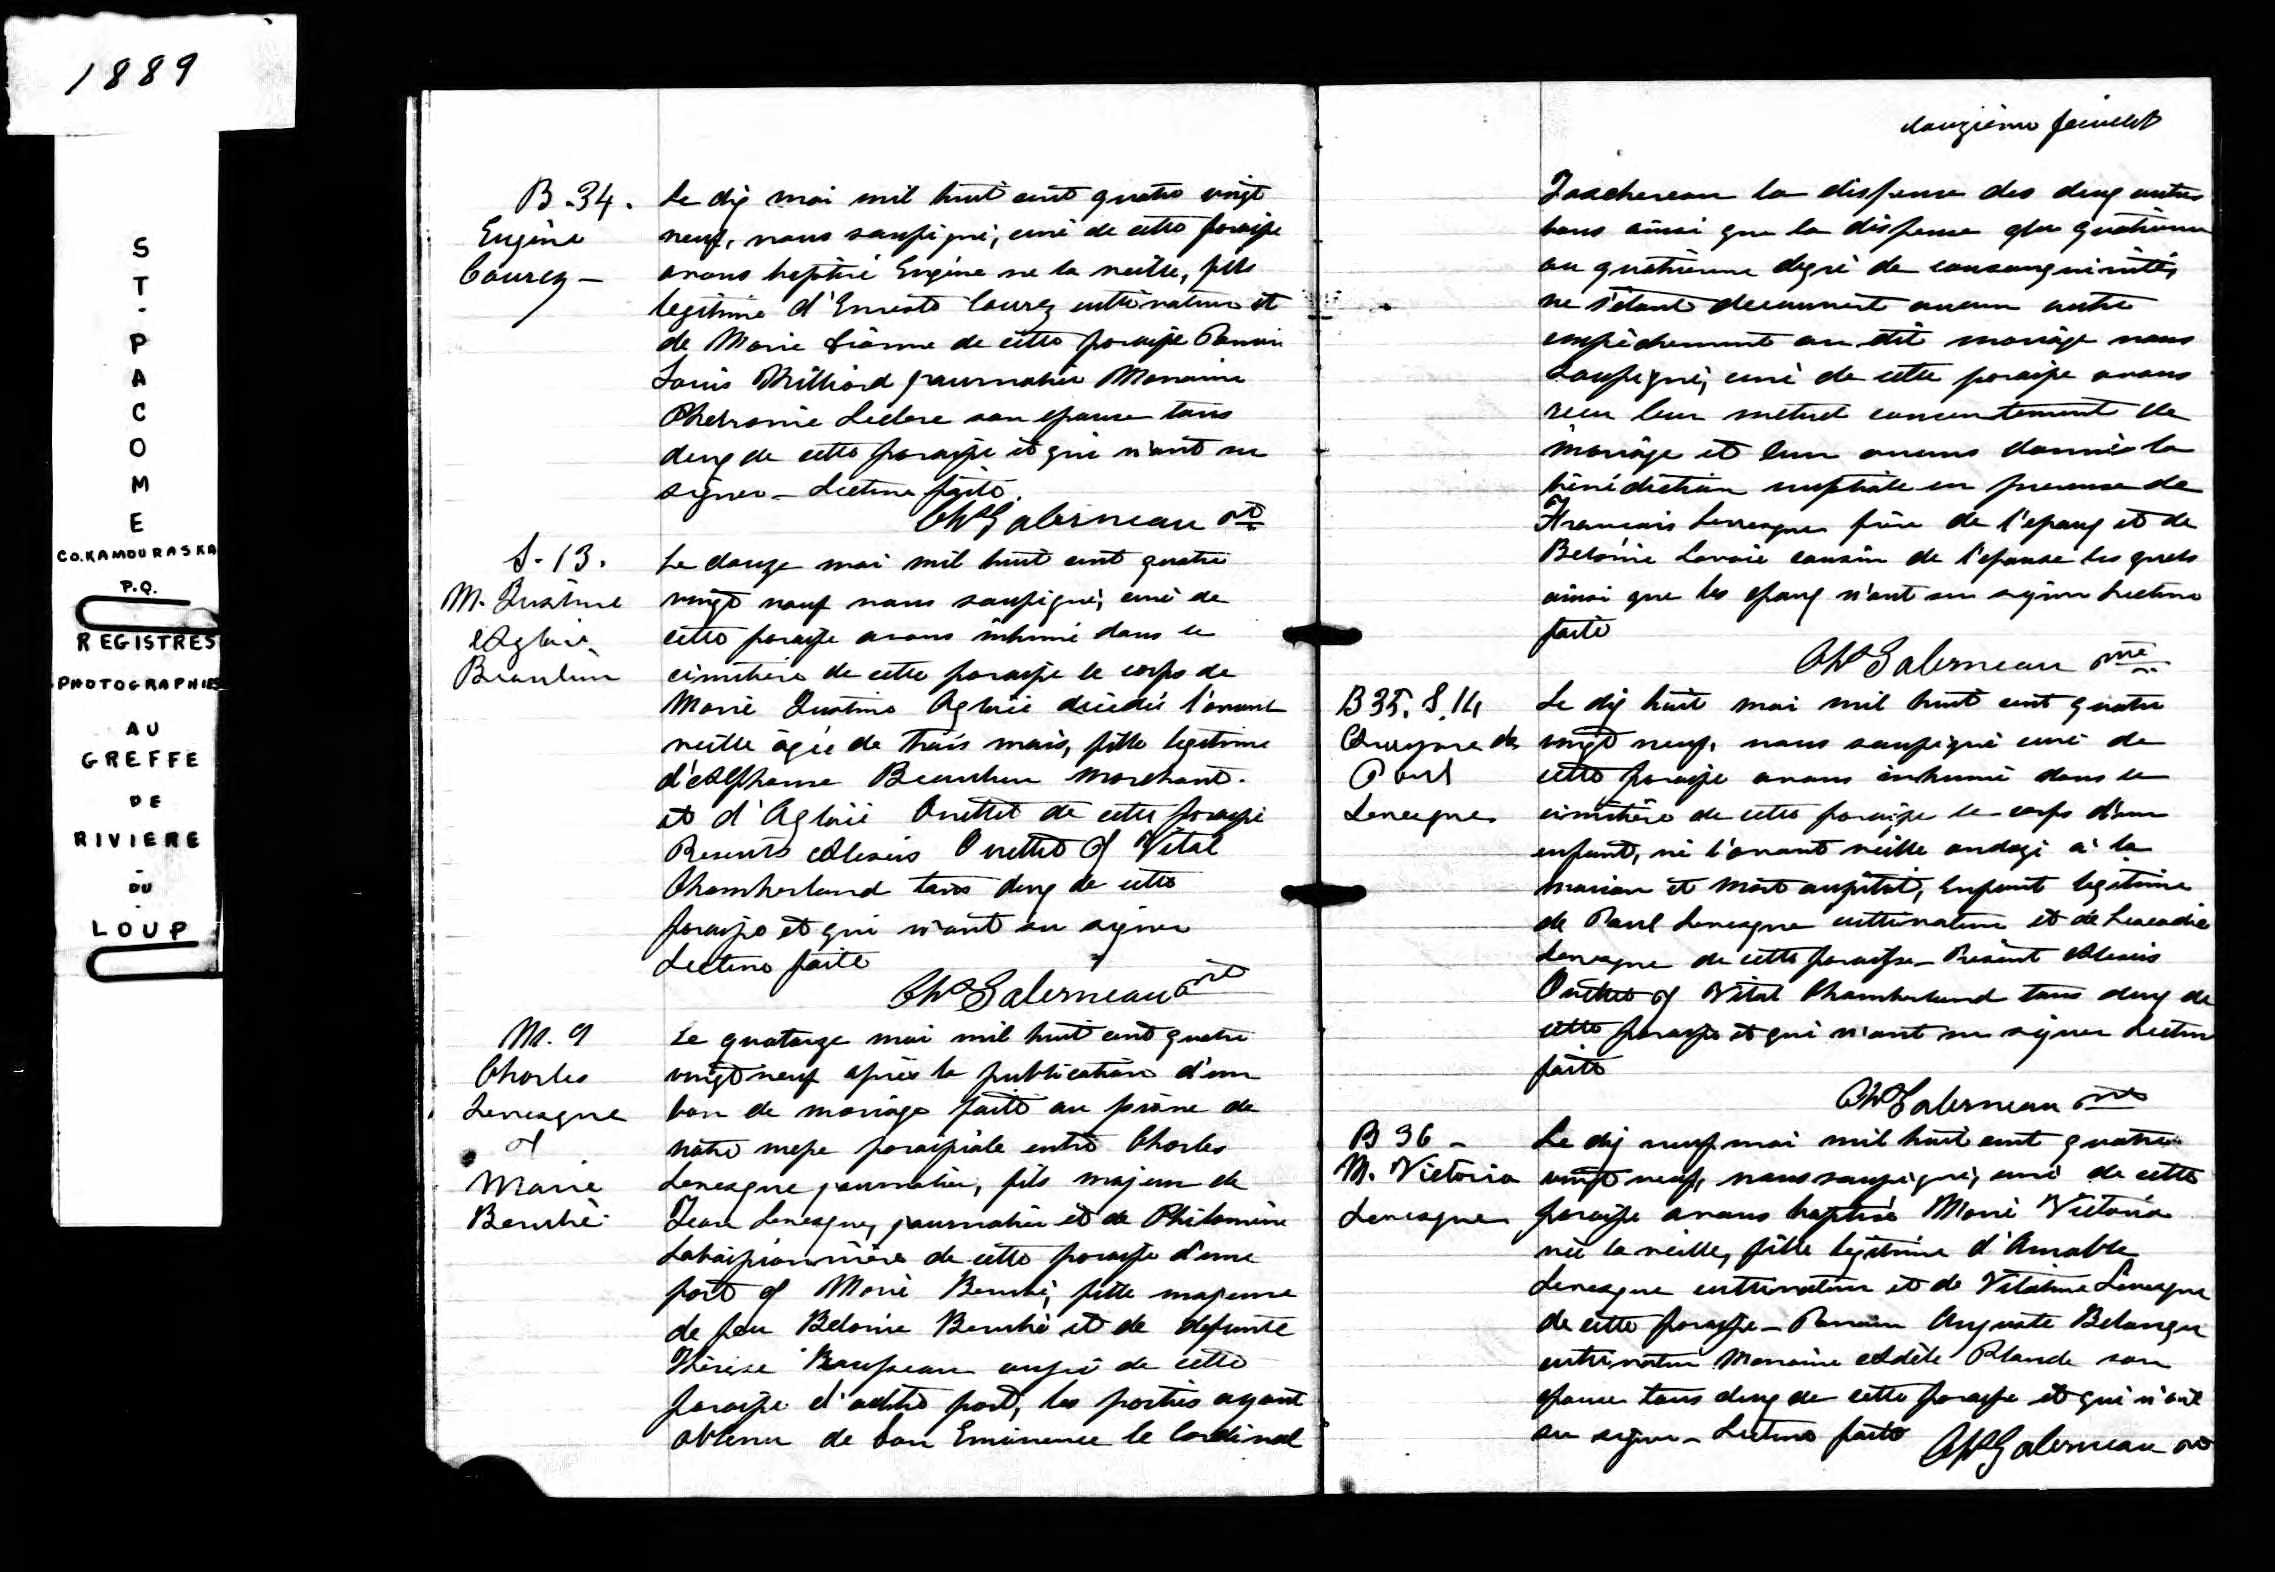 1889
ST-PACOME
CO.KAMOURASKA
P.Q.
REGISTRES
PHOTOGRAPHIES
AU
GREFFE
DE
RIVIERE
-
DU
-
LOUP
B-34.
Eugène
Courcy-
Le dix mai mil huit cent quatre vingt
neuf, nous soussigné, curé de cette paroisse
avons baptisé Eugène né la veille, fils
légitime d'Ernest Courcy cultivateur et
de Marie Dionne de cette paroisse Parrain
Louis Milliard journalier Marraine
Phebronie Leclerc son épouse tous
deux de cette paroisse et qui n'ont su
signer - Lecture faite.
Chs Galerneau
S-13.
M. Justine
Aglaé
Beaulieu
Le douze mai mil huit cent quatre
vingt neuf nous soussigné, curé de
cette paroisse avons inhumé dans le
cimetière de cette paroisse le corps de
Marie Justine Aglaée décédée l'avant
veille âgée de trois mois, fille légitime
d'Alphonse Beaulieu marchand.
et d'Aglaée Ouellet de cette paroisse
Présents Alexis Ouellet & Vital
Chamberland tous deux de cette
paroisse et qui n'ont su signer
Lecture faite
Chs Galerneau
M. 9
Charles
Levesque
&
Marie
Berubé
Le quatorze mai mil huit cent quatre
vingt neuf après la publication d'un
ban de mariage faite au prône de
notre messe paroissiale entre Charles
Levesque journalier, fils majeur de
Jean Levesque, journalier et de Philomène
de cette paroisse d'une
part & Marie Berubé, fille majeure
de feu Beloine Berubé et de défunte
Thérèse aussi de cette
paroisse d'autre part, les parties ayant
obtenu de Son Eminence le Cardinal
douzième feuillet
Taschereau la dispense des deux autres
bans ainsi que la dispense du quatrième
au quatrième degré de consanguinité,
ne s'étant découvert aucun autre
empêchement au dit mariage nous
soussigné, curé de cette paroisse avons
recu leur mutuel consentement de
mariage et leur avons donné la
bénédiction nuptiale en présence de
Francois Levesque frère de l'epoux et de
Beloine Lavoie cousin de l'epouse lesquels
ainsi que les epoux n'ont su signer Lecture
faite
Chs Galerneau
B 35. S. 14
de
Paul
Levesque
Le dix huit mai mil huit cent quatre
vingt neuf, nous soussigné curé de
cette paroisse avons inhumé dans le
cimetière de cette paroisse le corps d'un
enfant, né l'avant veille ondoyé à la
maison et mort aussitôt, Enfant légitime
de Paul Levesque cultivateur et de Leocadie
Levesque de cette paroisse - Présent Alexis
Ouellet & Vital Chamberland tous deux de
cette paroisse et qui n'ont su signer Lecture
faite
Chs Galerneau
B 36 -
M. Victoria
Levesque
Le dix neuf mai mil huit cent quatre
vingt neuf, nous soussigné, curé de cette
paroisse avons baptisé Marie Victoria
née la veille, fille légitime d'Amable
Levesque cultivateur et de Vitaline Levesque
de cette paroisse - Parrain Auguste Belanger
cultivateur Marraine Adèle Plourde son
épouse tous deux de cette paroisse et qui n'ont
su signer - Lecture faite
Chs Galerneau